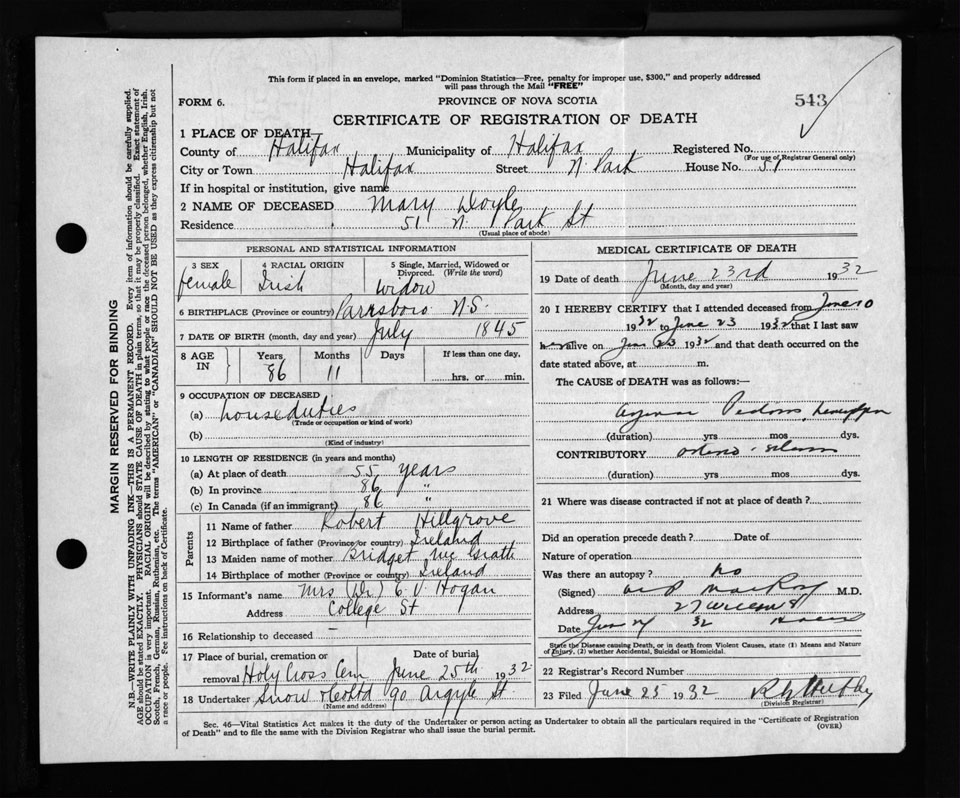 This form if placed in an envelope, marked "Dominion Statistics—Free, penalty for improper use, $300," and properly addressed
will pass through the Mail "FREE"
FORM 6.
PROVINCE OF NOVA SCOTIA
543
CERTIFICATE OF REGISTRATION OF DEATH
1 PLACE OF DEATH
County of Halifax Municipality of Halifax Registered No.
(For use of Registrar General only)
City or Town Halifax Street N Park House No. 51
If in hospital or institution, give name
2 NAME OF DECEASED Mary Doyle
Residence 51 N. Park St
(Usual place of abode)
PERSONAL AND STATISTICAL INFORMATION
3 SEX 4 RACIAL ORIGIN 5 Single, Married, Widowed or
Divorced. (Write the word)
female Irish widow
6 BIRTHPLACE (Province or country) Parrsboro N.S.
7 DATE OF BIRTH (month, day and year) July 1845
8 AGE IN Years Months Days If less than one day,
86 11 hrs. or min.
9 OCCUPATION OF DECEASED
(a) house duties
(Trade or occupation or kind of work)
(b)
(Kind of industry)
10 LENGTH OF RESIDENCE (in years and months)
(a) At place of death 55 years
(b) In province 86 "
(c) In Canada (if an immigrant) 86 "
Parents
11 Name of father Robert Hillgrove
12 Birthplace of father (Province or country) Ireland
13 Maiden name of mother Bridget McGrath
14 Birthplace of mother (Province or country) Ireland
15 Informant's name Mrs (Dr.) C. V. Hogan
Address College St
16 Relationship to deceased –
17 Place of burial, cremation or Date of burial
removal Holy Cross Cem June 25th 1932
18 Undertaker Snow & Co Ltd 90 Argyle St
(Name and address)
MEDICAL CERTIFICATE OF DEATH
19 Date of death June 23rd 1932
(Month, day and year)
20 I HEREBY CERTIFY that I attended deceased from June 10
1932 to June 23 1932 that I last saw
her alive on June 23 1932 and that death occurred on the
date stated above, at m.
The CAUSE OF DEATH was as follows:—
(duration) yrs mos dys.
CONTRIBUTORY
(duration) yrs mos dys.
21 Where was disease contracted if not at place of death?
Did an operation precede death? Date of
Nature of operation
Was there an autopsy? no
(Signed) M.D.
Address
Date 32
State the Disease causing Death, or in death from Violent Causes, state (1) Means and Nature
of Injury, (2) whether Accidental, Suicidal or Homicidal.
22 Registrar's Record Number
23 Filed June 25 1932
(Division Registrar)
Sec. 46—Vital Statistics Act makes it the duty of the Undertaker or person acting as Undertaker to obtain all the particulars required in the "Certificate of Registration
of Death" and to file the same with the Division Registrar who shall issue the burial permit.
(OVER)
MARGIN RESERVED FOR BINDING
N.B.—WRITE PLAINLY WITH UNFADING INK—THIS IS A PERMANENT RECORD. Every item of information should be carefully supplied.
AGE should be stated EXACTLY. PHYSICIANS should STATE CAUSE OF DEATH in plain terms, so that it may be properly classified. Exact statement of
OCCUPATION is very important. RACIAL ORIGIN will be described by stating to what people or race the deceased person belonged, whether English, Irish,
Scotch, French, German, Russian, Ruthenian, etc. The terms "AMERICAN" or "CANADIAN" SHOULD NOT BE USED as they express citizenship but not
a race or people. See instructions on back of Certificate.